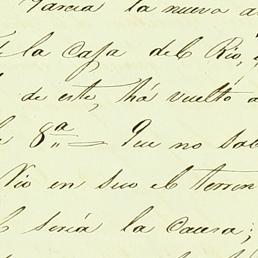 Garcia la nueva a
la Casa del Rio,
de este, há vuelto a
8ª = Que no sab
Vio en suo el terren
seria la Causa;